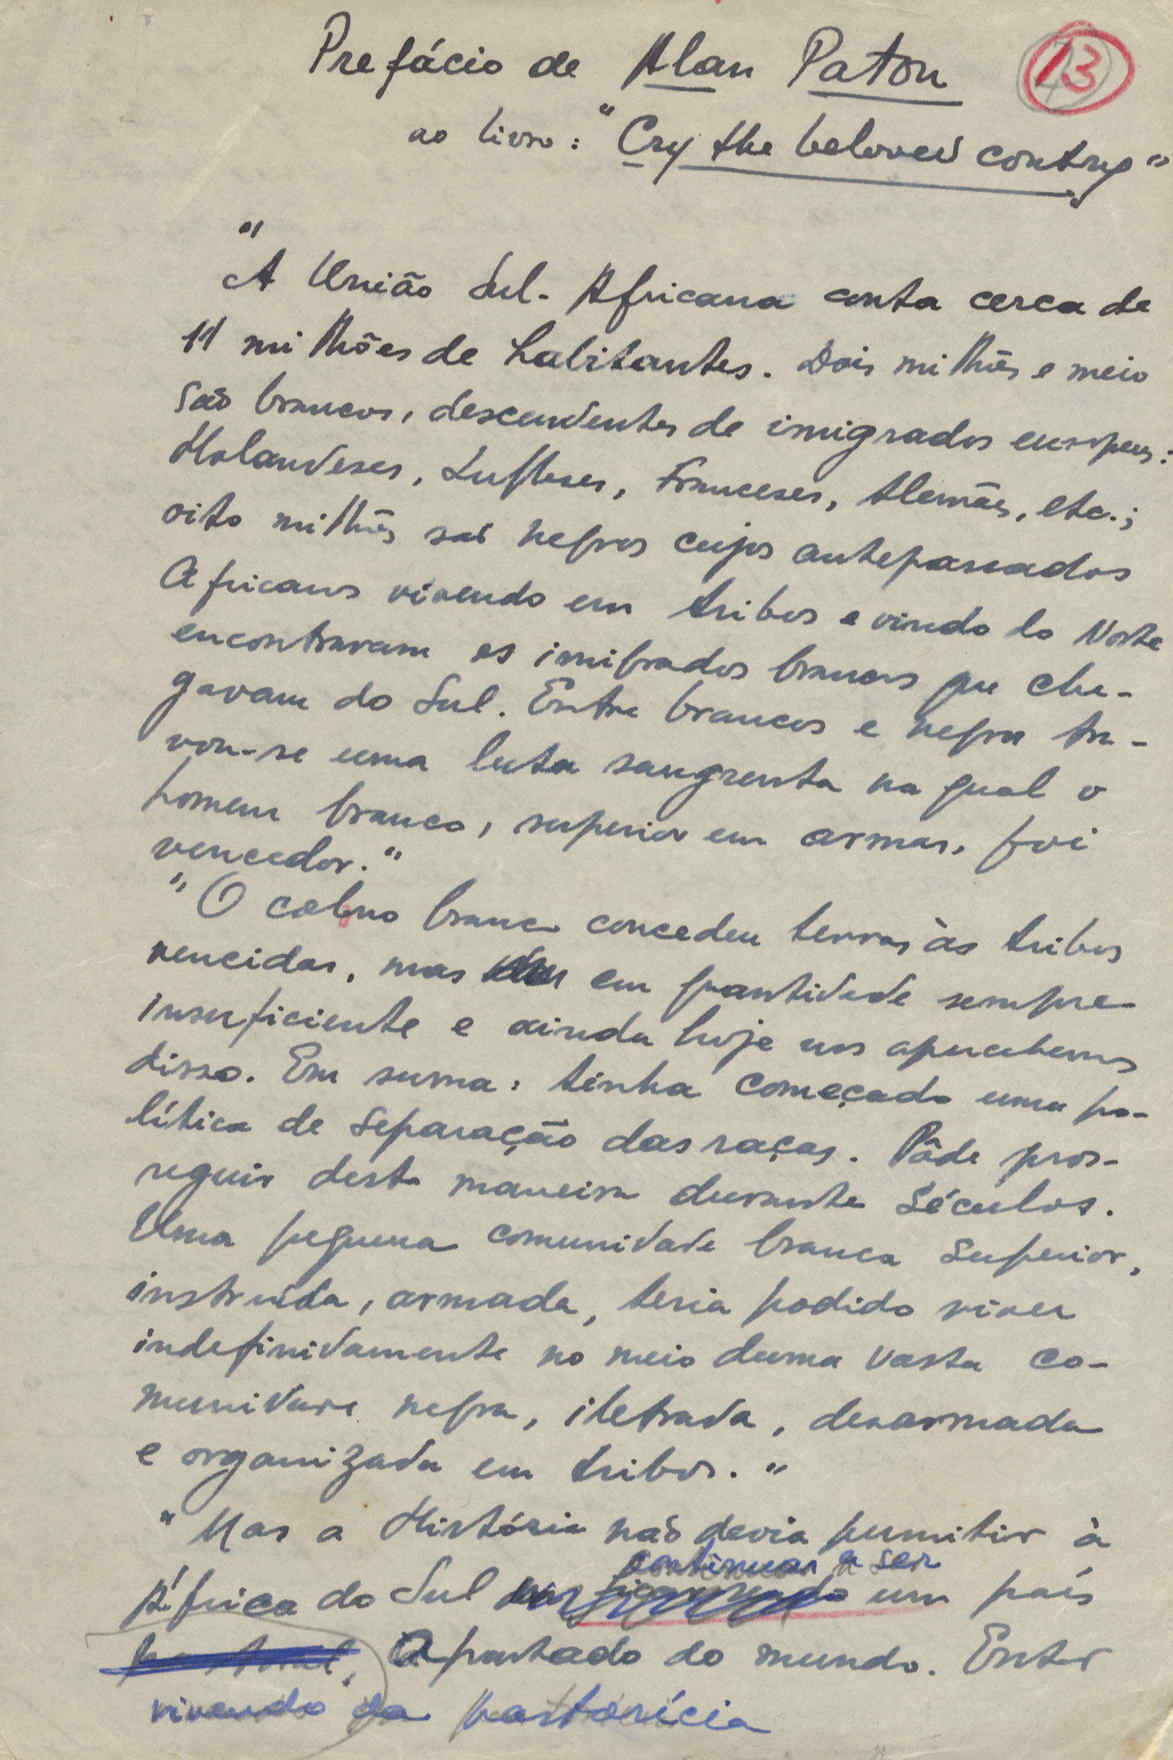 Prefácio de Alan Paton
13
ao livro: "Cry the beloved contry"
"A União Sul-Africana conta cerca de
11 milhões de habitantes. Dois milhões e meio
são brancos, descendentes de imigrados europeus:
Holandeses, Ingleses, Franceses, Alemães, etc.;
oito milhões são negros cujos antepassados
Africanos vivendo em tribos e vindo do Norte
encontravam os imigrados brancos que che-
gavam do Sul. Entre brancos e negros tra-
vou-se uma luta sangrenta na qual o
homem branco, superior em armas, foi
vencedor."
"O colono branco concedeu terras às tribos
vencidas, mas em quantidade sempre
insuficiente e ainda hoje nos apercebemos
disso. Em suma: tinha começado uma po-
lítica de separação das raças. Pôde pros-
seguir desta maneira durante séculos.
Uma pequena comunidade branca superior,
instruída, armada, teria podido viver
indefinidamente no meio duma vasta co-
munidade negra, iletrada, desarmada
e organizada em tribos."
"Mas a História não devia permitir à
continuar a ser
África do Sul um país
pastoral, apartado do mundo. Entre
vivendo da pastorícia